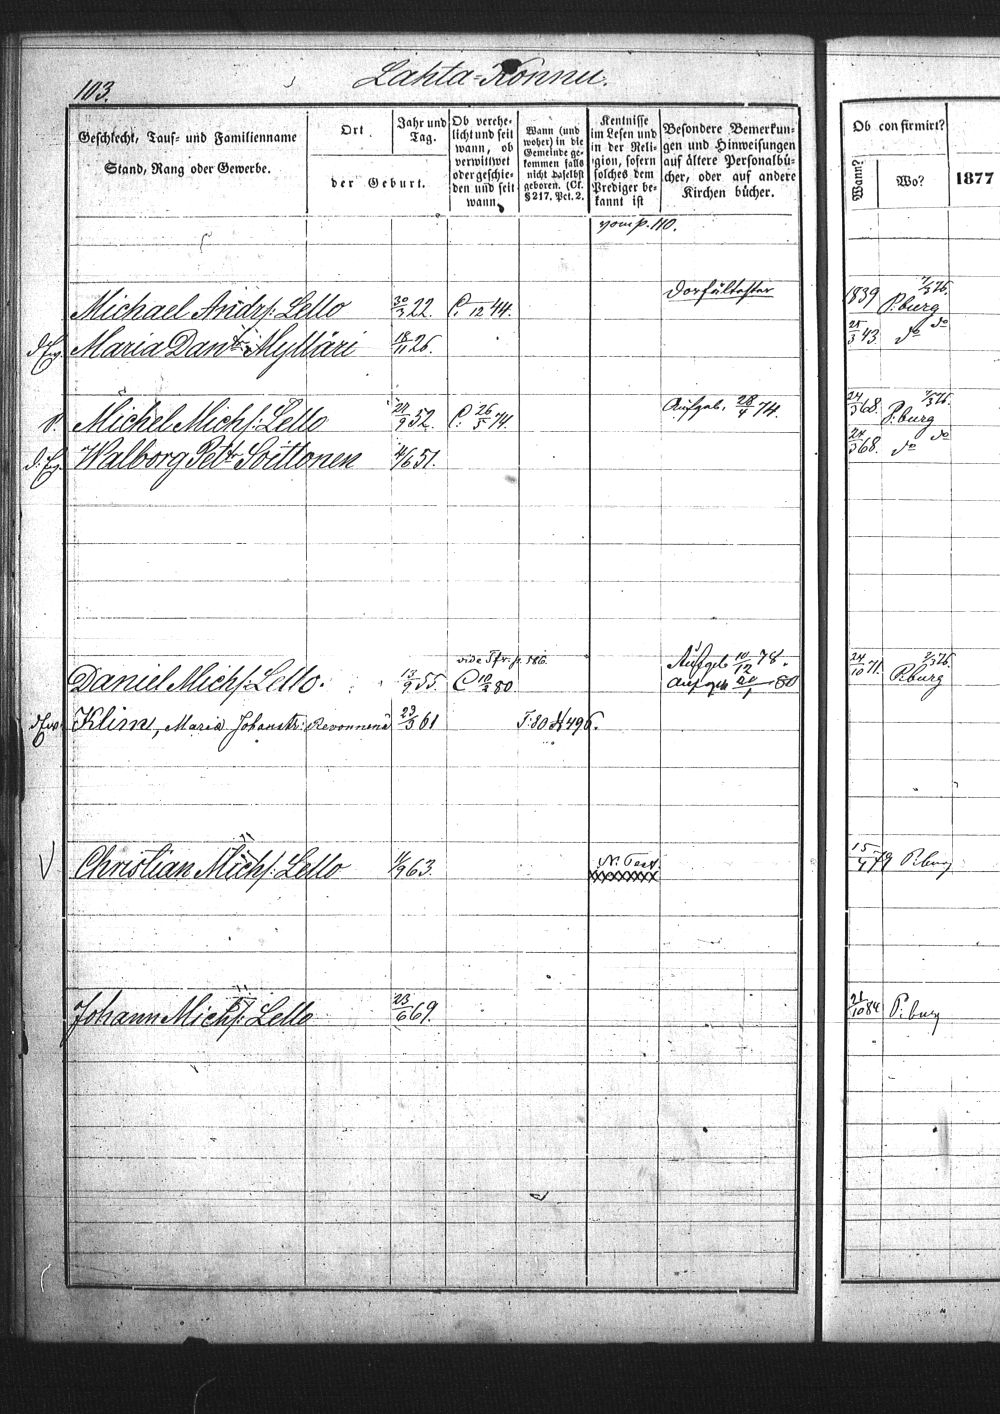 103. Lahta=Konnu.
Geschlecht, Tauf- und Familienname
Stand, Rang oder Gewerbe.
Ort
der Geburt.
Jahr und
Tag.
Ob verehe-
licht und seit
wann, ob
verwittwet
oder geschie-
den und seit
wann.
Wann (und
woher) in die
Gemeinde ge-
kommen falls
nicht daselbst
geboren. (Cf.
§ 217, Pct. 2.
Kentnisse
im Lesen und
in der Reli-
gion, sofern
solches dem
Prediger be-
kannt ist
Besondere Bemerkun-
gen und Hinweisungen
auf ältere Personalbü-
cher, oder auf andere
Kirchen bücher.
Ob confirmirt?
Wann?
Wo?
1877
vom p. 110.
Michael Andrs: Lello 30/3 22. C. /12 44. Dorfältester 1839 P.burg
Maria Dan tr Mylläri 18/11 26. 25/3 43. do do
Michel Michs: Lello 24/9 52. C. 26/5 74. Aufgeb. 28/4 74. 24/3 68. P.burg
Walborg Pet tr Soittonen 4/6 51. 24/3 68. do do
Daniel Michs: Lello. 13/9 55. vide Tfr. p. 186. C 10/2 80 Aufgeb 10/12 78. Aufgeb 20/1 80 24/10 71. P.burg
Klim, Maria Johanstr: Revonnena 23/3 61 T: 80 N 496.
Christian Michs: Lello 11/9 63. N. Test. 15/4 79 P.burg
Johann Michs: Lello 23/6 69. 21/10 84 P.burg